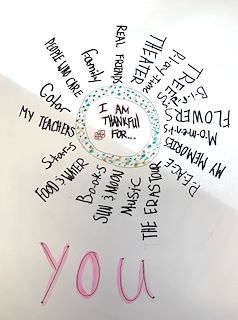 I AM
THANKFUL
FOR...
REAL FRIENDS
THEATER
Playtime
TREES
FLOWERS
Moments
MY MEMORIES
PEACE
THE ERAS TOUR
Music
SUN & MOON
Books
FOOD & WATER
Stars
MY TEACHERS
Color
PEOPLE WHO CARE
Family
YOU